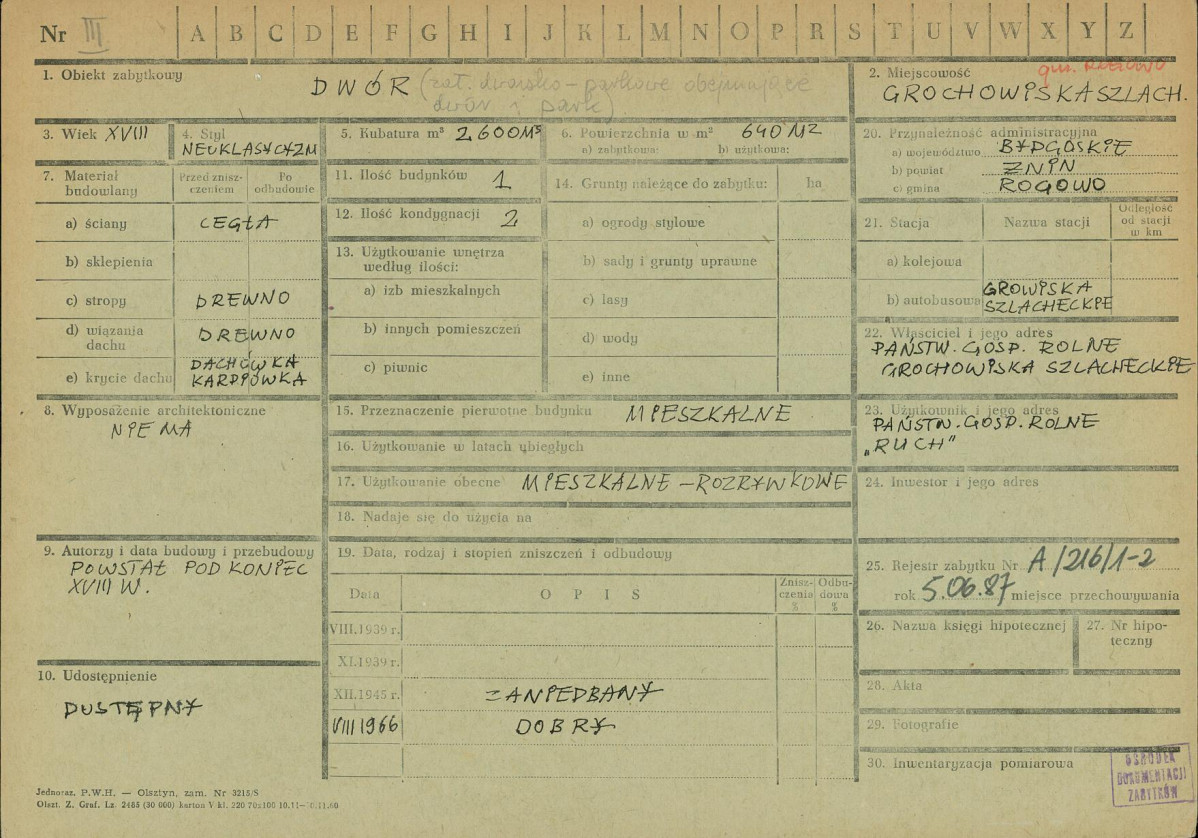 Nr III A B C D E F G H I J K L M N O P R S T U V W X Y Z
1. Obiekt zabytkowy
DWÓR (zał. dworsko-parkowe obejmujące
dwór i park)
2. Miejscowość
gm. Rogowo
GROCHOWISKA SZLACH.
3. Wiek XVIII
4. Styl
NEUKLASYCYZM
5. Kubatura m³ 2600M³
6. Powierzchnia w m² 640 M2
a) zabytkowa: b) użytkowa:
7. Materiał budowlany
Przed znisz-
czeniem
Po
odbudowie
a) ściany CEGŁA
b) sklepienia
c) stropy DREWNO
d) wiązania
dachu DREWNO
e) krycie dachu DACHÓWKA
KARPIÓWKA
8. Wyposażenie architektoniczne
NIE MA
9. Autorzy i data budowy i przebudowy
POWSTAŁ POD KONIEC
XVIII W.
10. Udostępnienie
DOSTĘPNY
11. Ilość budynków 1
12. Ilość kondygnacji 2
13. Użytkowanie wnętrza
według ilości:
a) izb mieszkalnych
b) innych pomieszczeń
c) piwnic
14. Grunty należące do zabytku: ha
a) ogrody stylowe
b) sady i grunty uprawne
c) lasy
d) wody
e) inne
15. Przeznaczenie pierwotne budynku MIESZKALNE
16. Użytkowanie w latach ubiegłych
17. Użytkowanie obecne MIESZKALNE – ROZRYWKOWE
18. Nadaje się do użycia na
19. Data, rodzaj i stopień zniszczeń i odbudowy
Data
OPIS
Znisz-
czenia
%
Odbu-
dowa
%
VIII.1939 r.
XI.1939 r.
XII.1945 r. ZANIEDBANY
VIII 1966 DOBRY
20. Przynależność administracyjna
a) województwo BYDGOSKIE
b) powiat ZNIN
c) gmina ROGOWO
21. Stacja
Nazwa stacji
Odległość
od stacji
w km
a) kolejowa
b) autobusowa GROWISKA
SZLACHECKIE
22. Właściciel i jego adres
PAŃSTW. GOSP. ROLNE
GROCHOWISKA SZLACHECKIE
23. Użytkownik i jego adres
PAŃSTW. GOSP. ROLNE
„RUCH"
24. Inwestor i jego adres
25. Rejestr zabytku Nr A/216/1-2
rok 5.06.87 miejsce przechowywania
26. Nazwa księgi hipotecznej
27. Nr hipo-
teczny
28. Akta
29. Fotografie
30. Inwentaryzacja pomiarowa
OŚRODEK
DOKUMENTACJI
ZABYTKÓW
Jednoraz. P.W.H. — Olsztyn, zam. Nr 3215/S
Olszt. Z. Graf. Lz. 2485 (30 000) karton V kl. 220 70x100